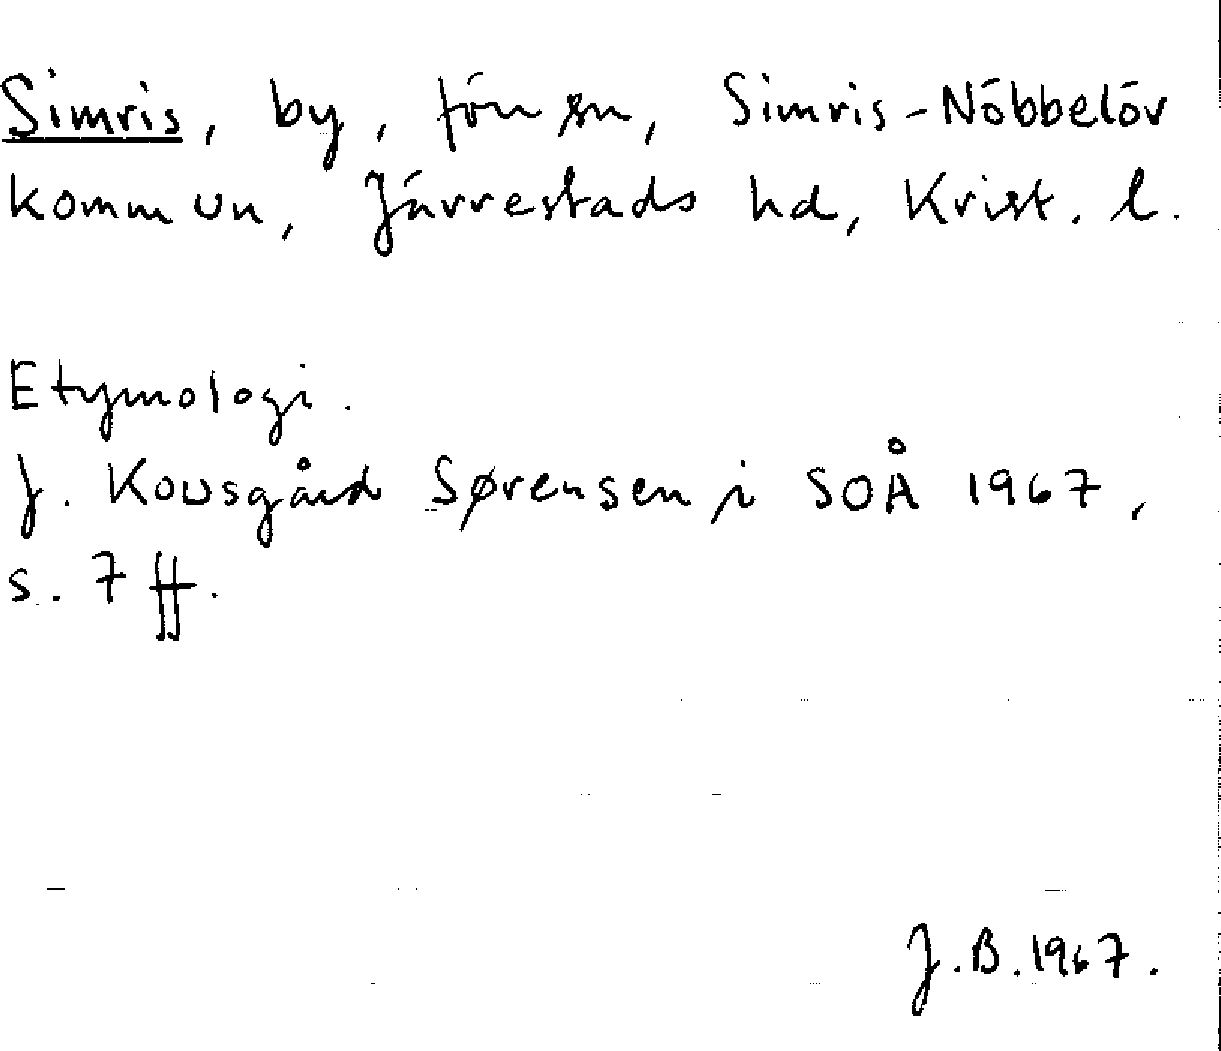 Simris, by, fön sn, Simris-Nöbbelöv
kommun, Järrestads hd, Krist. l.
Etymologi.
J. Kousgård Sørensen i SOÅ 1967,
s. 7 ff.
J.B. 1967.